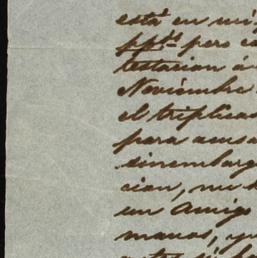 está en mi
pp.ds pero ca
testacion á
Noviembre
el triplica
para acusa
sinembarg
cion, me
un Amigo
manos, y